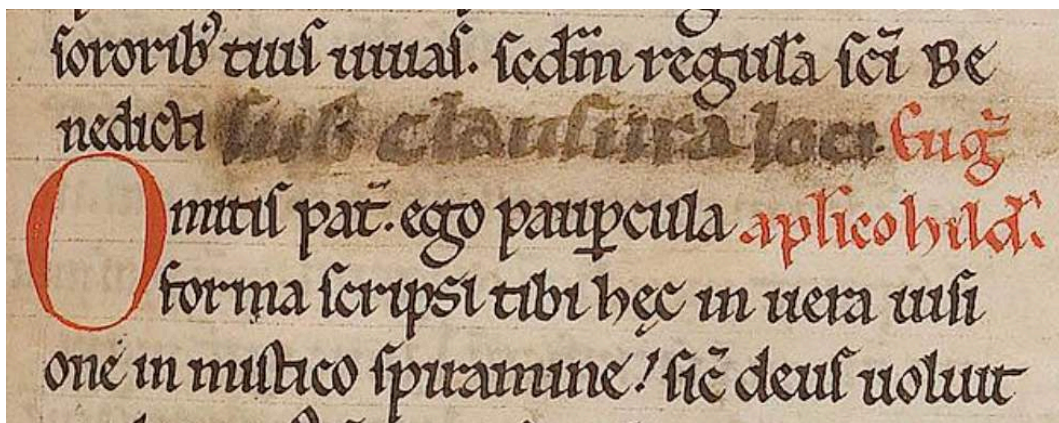 sororib᾽ tuis uiuas. scd̄m regulā sc̄i Be
nedicti sub clausura loci. Eug̃
O mitis pat̃. ego paupcula aplico hild᾽.
forma scripsi tibi hęc in uera uisi
one in mistico spiramine! sic̃ deus uoluit